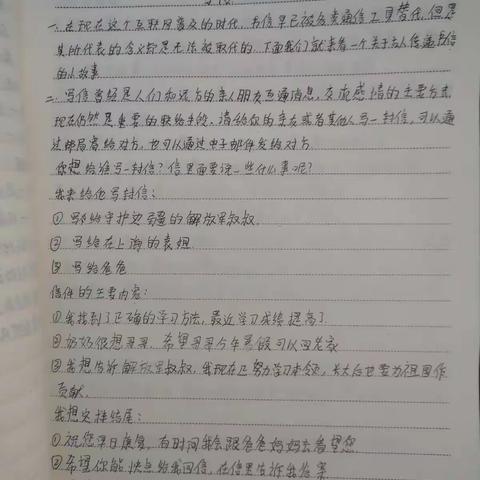 一、在现在这个互联网普及的时代,书信早已被各类通信工具替代,但是
其所代表的含义却是无法被取代的,下面我们就来看一个关于古人传递书信
的小故事
二、写信曾经是人们和远方的亲人朋友互通消息,交流感情的主要方式
现在仍然是重要的联络手段。请给你的亲友或者其他人写一封信,可以通
过邮局寄给对方,也可以通过电子邮件发给对方.
你想给谁写一封信?信里面要说一些什么事呢?
我来给他写封信:
①写给守护边疆的解放军叔叔.
②写给在上海的表姐
③写给爸爸
信件的主要内容:
①我找到了正确的学习方法,最近学习成绩提高了.
②奶奶很想哥哥,希望哥哥今年寒假可以回老家
③我想告诉解放军叔叔,我现在正努力学习本领,长大后也要为祖国作
贡献.
我想这样结尾:
①祝您早日康复,有时间我会跟爸爸妈妈去看望您
②希望你能快点给我回信,在信里告诉我答案